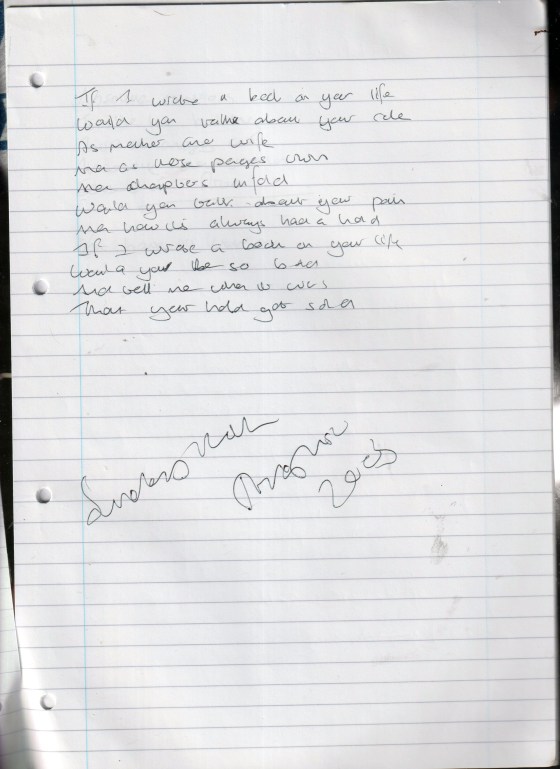 If I wrote a book on your life
Would you talk about your role
As mother and wife
And as these pages turn
And chapters unfold
Would you talk about your pain
And how it's always had a hold
If I wrote a book on your life
Would you be so bold
And tell me when it was
That your hold got sold